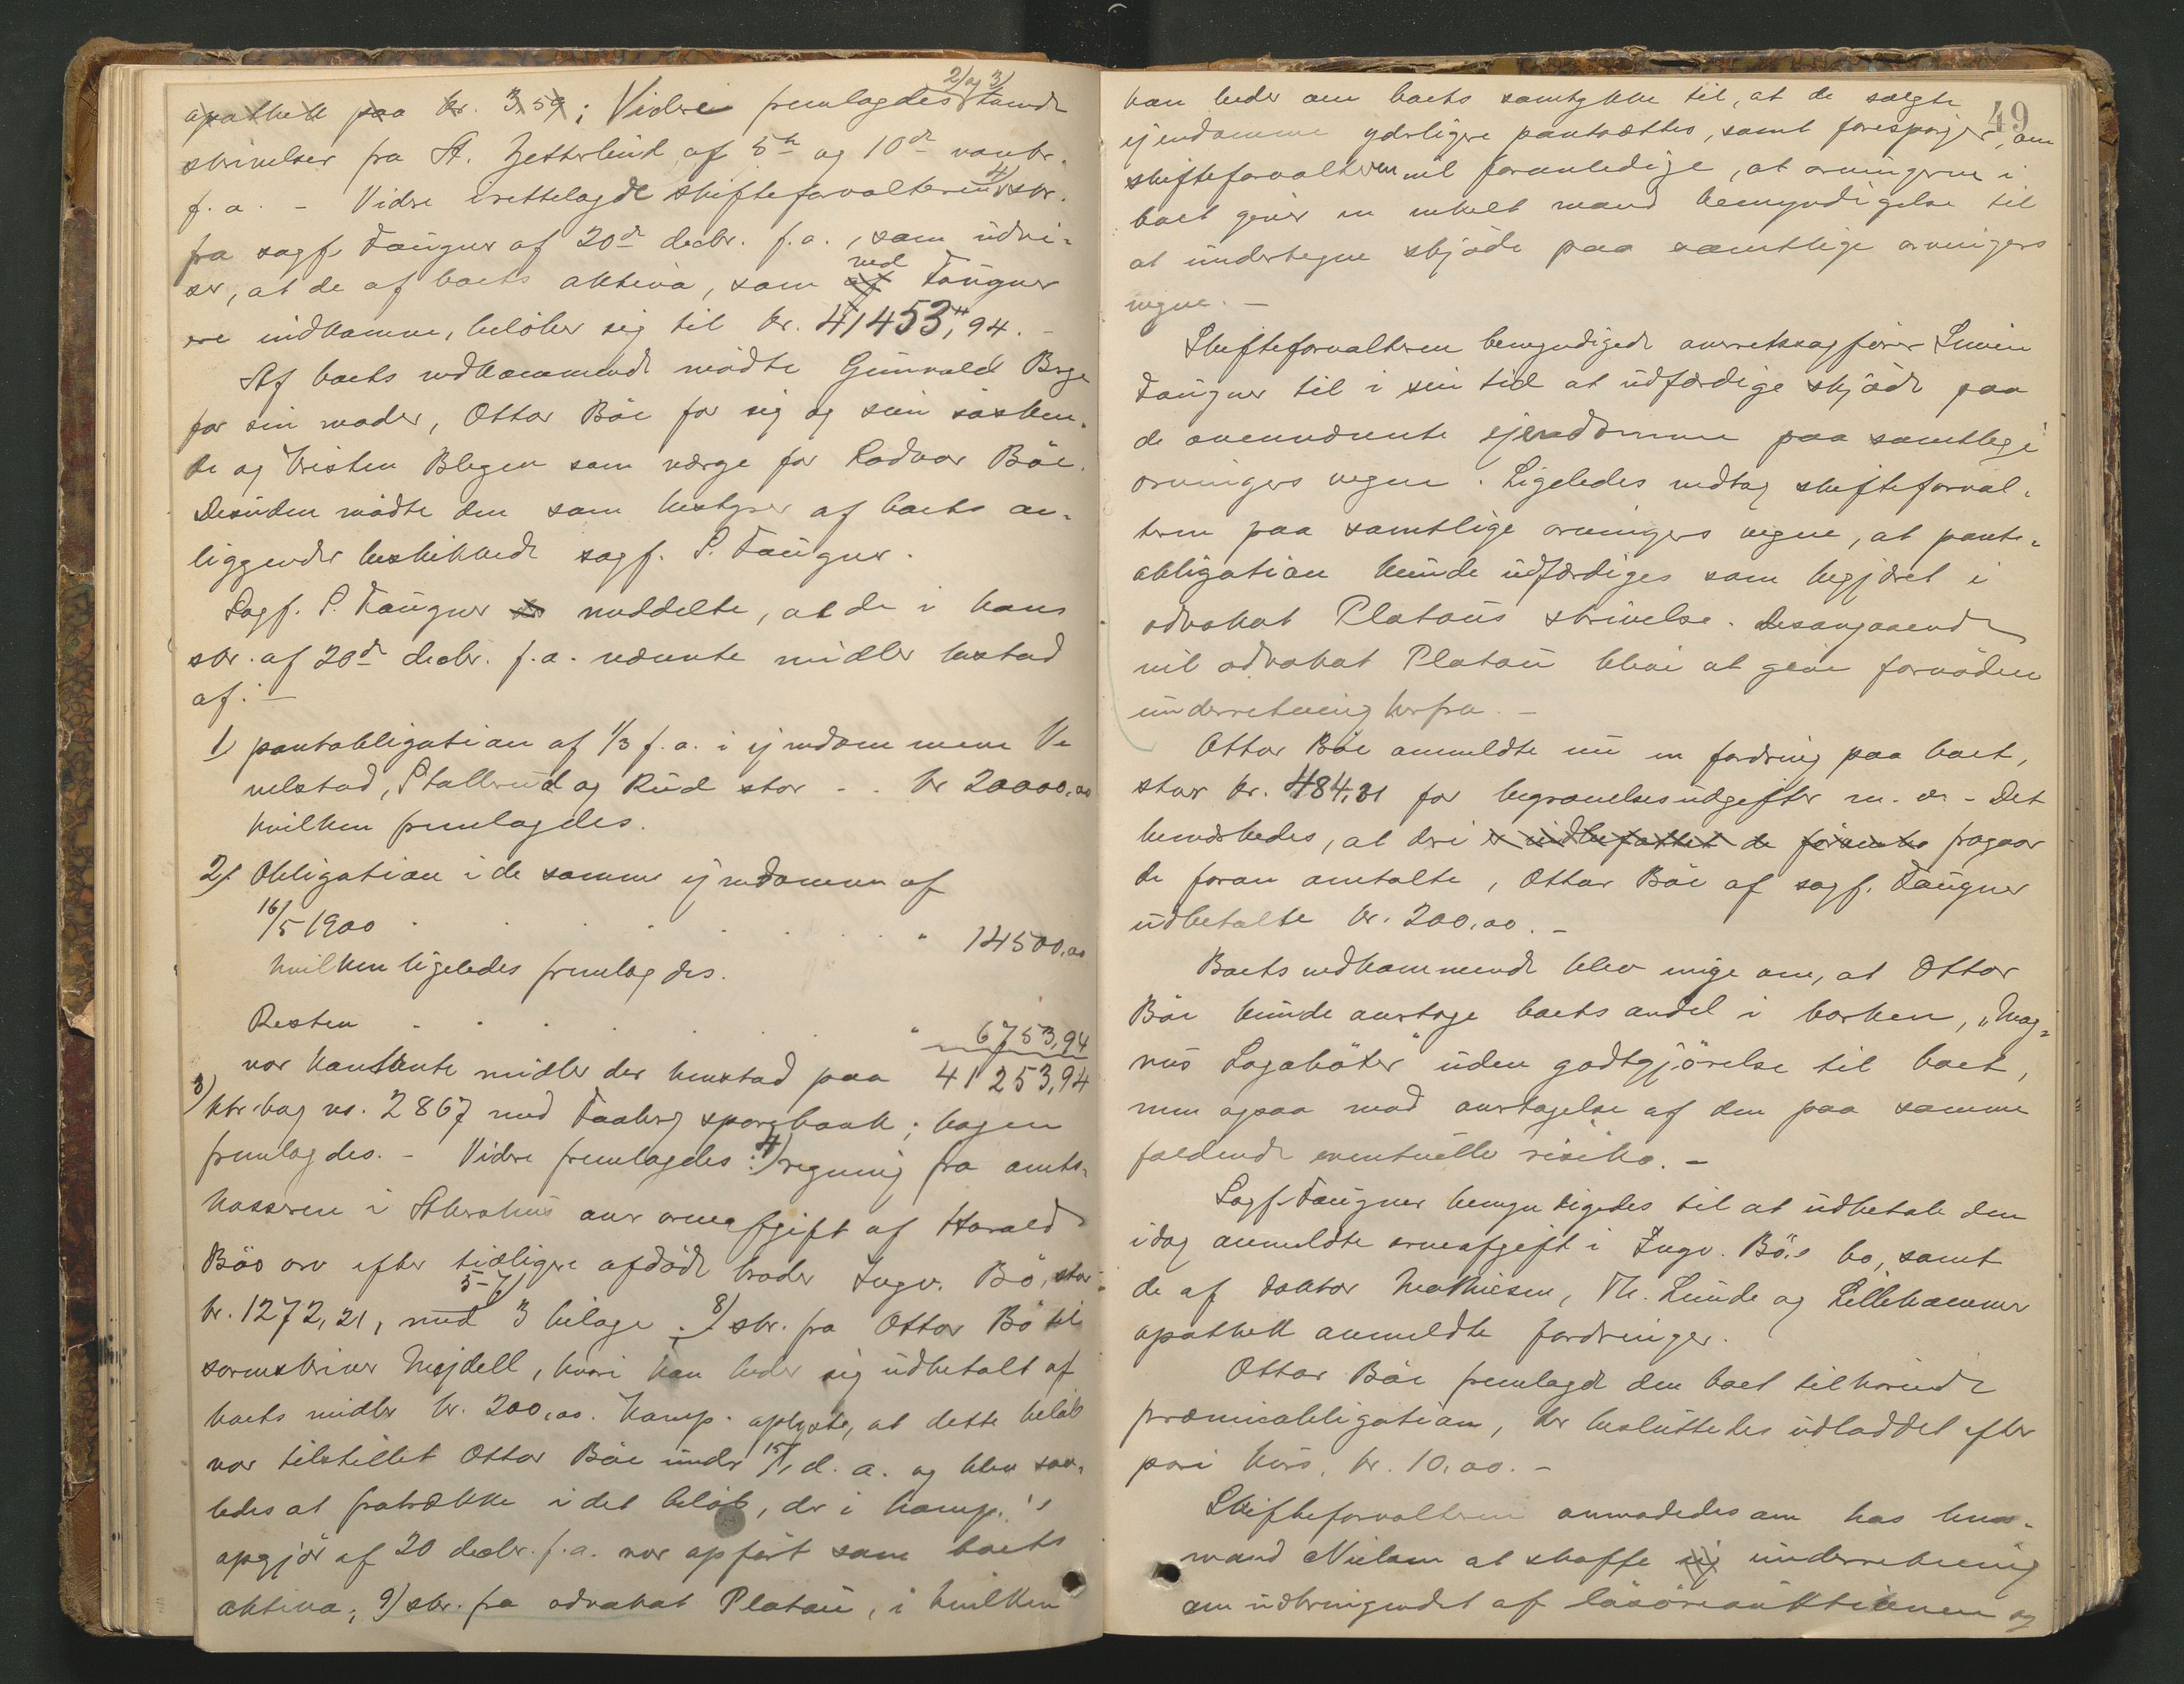 apothek paa kr. 3,59; Videre fremlagdes 2) og 3) tvende
skrivelser fra A. Zetterlund af 5te og 10de novbr.
f.a. - Videre irettelagde skifteforvalteren 4) skr.
fra sagf. Faugner af 20de decbr. f.a., som udvi-
ser, at de af boets aktiva, som ved af Faugner
ere indkomne, beløber sig til kr. 41453,94. -
Af boets vedkommende mødte Gunvald Bryge
for sin moder, Ottar Böe for sig og sine søsken-
de og Kristen Blegen som værge for Rodvar Böe.
Desuden mødte den som bestyrer af boets an-
liggender beskikkede sagf. S. Faugner.
Sagf. S. Faugner meddelte, at de i hans
skr. af 20de decbr. f.a. nævnte midler bestod
af: -
1) pantobligation af 1/3 f.a. i ejendommene Ve
velstad, Stallerud og Rud stor - . kr 20000,00
hvilken fremlagdes.
2) Obligation i de samme ejendomme af
16/5 1900 . . . . . . " 14500,00
hvilken ligeledes fremlagdes.
Resten . . . . . " 6753,94
var kontante midler der henstod paa 41253,94
3) ktr.bog no. 2867 med Faaberg sparebank; bogen
fremlagdes. - Videre fremlagdes: 4) regning fra amts-
kasseren i Akershus over arveafgift af Harald
Bös arv efter tidligere afdøde broder Ingv. Bö, stor
kr. 1272,21, med 5-7) 3 bilage; 8) skr. fra Ottar Bö til
sorenskriver Mejdell, hvori han beder sig udbetalt af
boets midler kr. 200,00. Komp. oplyste, at dette beløb
var tilstillet Ottar Böe under 15/1 d.a. og blev saa-
ledes at fratrække i det beløb, der i komp.'s
opgjør af 20 decbr. f.a. var opført som boets
aktiva; 9) skr. fra advokat Platou, i hvilken
49
han beder om boets samtykke til, at de solgte
ejendomme yderligere pantsættes, samt forespørger, om
skifteforvalteren vil foranledige, at arvingerne i
boet giver en enkelt mand bemyndigelse til
at undertegne skjøde paa samtlige arvingers
vegne. -
Skifteforvalteren bemyndigede overretssagfører Simen
Faugner til i sin tid at udfærdige skjøde paa
de ovennævnte ejendomme paa samtlige
arvingers vegne. Ligeledes vedtog skifteforval-
teren paa samtlige arvingers vegne, at pante-
obligation kunde udfærdiges som begjæret i
advokat Platous skrivelse. Desangaaende
vil advokat Platou blive at give fornøden
underretning herfra. -
Ottar Böe anmeldte nu en fordring paa boet,
stor kr. 484,31 for begravelsesudgifter m. v. - Det
bemærkedes, at deri er indbefattet de fornævnte fragaar
de foran omtalte, Ottar Böe af sagf. Faugner
udbetalte kr. 200,00. -
Boets vedkommende blev enige om, at Ottar
Böe kunde overtage boets andel i barken, "Mag-
nus Lagaböter" uden godtgjörelse til boet,
men ogsaa mod overtagelse af den paa samme
faldende eventuelle risiko. -
Sagf. Faugner bemyndigedes til at udbetale den
idag anmeldte arveafgift i Ingv. Bös bo, samt
de af doktor Mathiesen, Th. Lunde og Lillehammer
apothek anmeldte fordringer.
Ottar Böe fremlagde den boet tilhørende
præmieobligation, der besluttedes udloddet efter
pari kurs, kr. 10,00. -
Skifteforvalteren anmodedes om hos lens-
mand Nielsen at skaffe sig underretning
om udbringendet af løsøreauktionen og